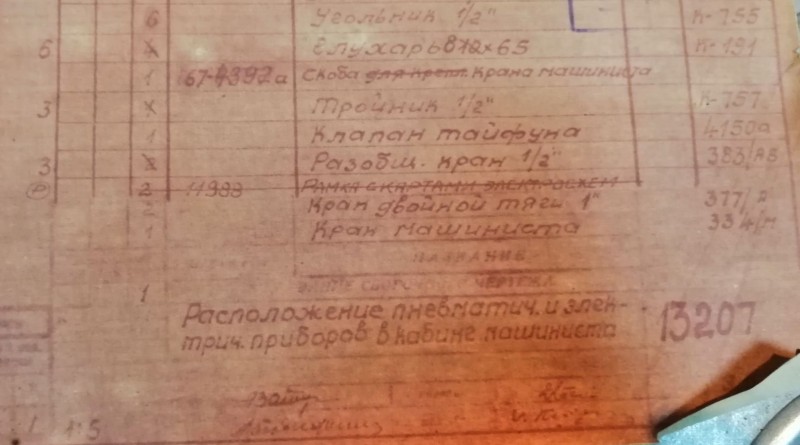 6 Угольник 1/2" К-755
6 Глухарь ø12×65 К-191
1 67-4392а Скоба для креп. крана машиниста
3 Тройник 1/2" К-757
1 Клапан тайфуна 4150а
3 Разобщ. кран 1/2" 383/АВ
Р 2 11988 Рамка с картами электросхем
Кран двойной тяги 1" 377/А
1 Кран машиниста 334/М
НАЗВАНИЕ
1 ЧЕРТЕЖА
Расположение пневматич. и элек-
трич. приборов в кабине машиниста 13207